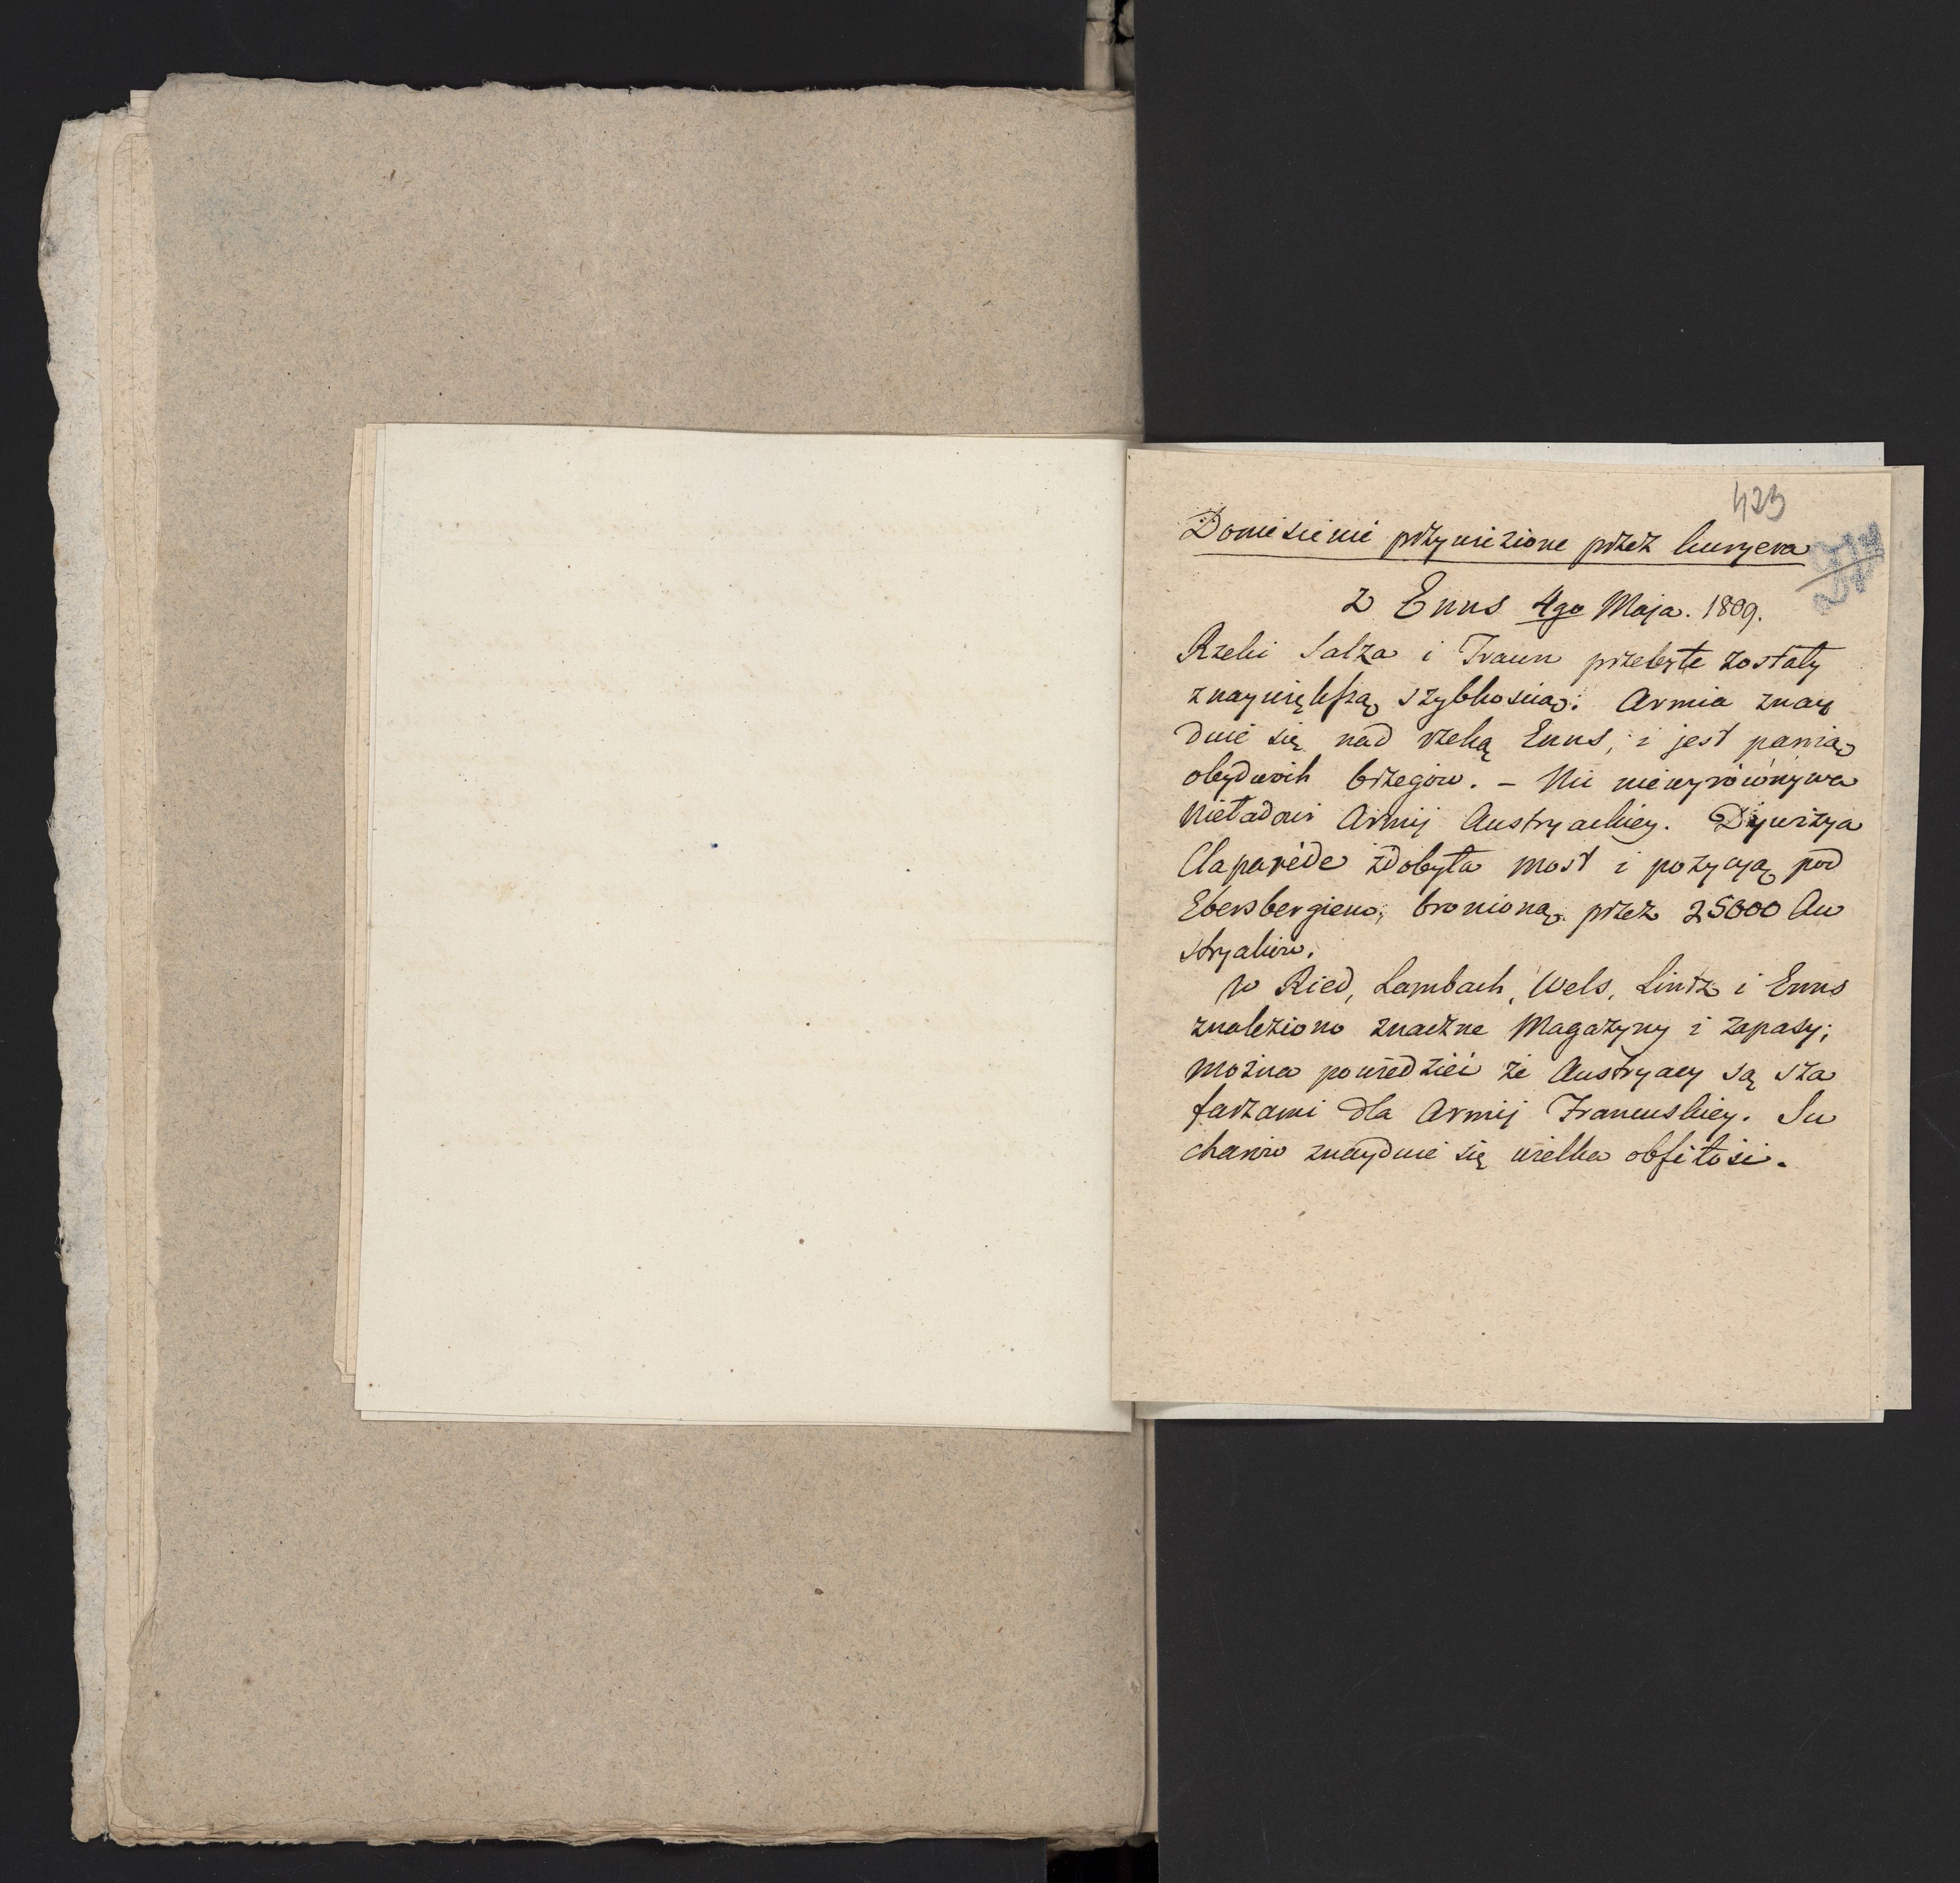 423
Doniesienie przywiezione przez kuryera
z Enns 4go Maja. 1809.
Rzeki Salza i Traun przebyte zostały
z naywiększą szybkością: Armia znay
duie się nad rzeką Enns, i jest panią
obydwóch brzegów. – Nic niewyrównywa
nieładowi Armij Austryackiey. Dywizya
Claparéde zdobyła most i pozycyą pod
Ebersbergiem, bronioną przez 25000 Au
stryaków.
w Ried, Lambach, Wels, Lintz i Enns
znaleziono znaczne Magazyny i zapasy;
można powiedzieć że Austryacy są sza
farzami dla Armij Francuskiey. Su
charów znayduie się wielka obfitość.